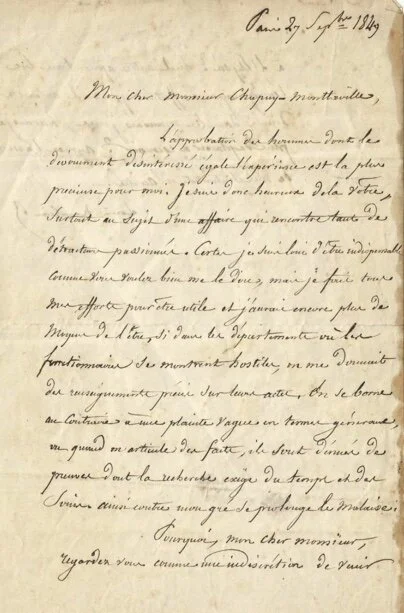 Paris 27 Sepbre 1849
Mon cher monsieur Chapuy-Montlaville,
L'approbation des hommes dont le
dévouement désintéressé égale l'expérience est la plus
précieuse pour moi. je suis donc heureux de la vôtre,
surtout au sujet d'une affaire qui rencontre tant de
détracteurs passionnés. Certes je suis loin d'être indispensable
comme vous voulez bien me le dire, mais je fais tous
mes efforts pour être utile et j'aurai encore plus de
moyens de l'être, si dans les départements où les
fonctionnaires se montrent hostiles, on me donnait
des renseignements précis sur leurs actes. On se borne
au contraire à une plainte vague en termes généraux,
ou quand on articule des faits, ils sont dénués de
preuves dont la recherche exige du temps et des
soins. ainsi contre mon gré se prolonge le malaise.
Pourquoi, mon cher monsieur,
regardez vous comme une indiscrétion de venir